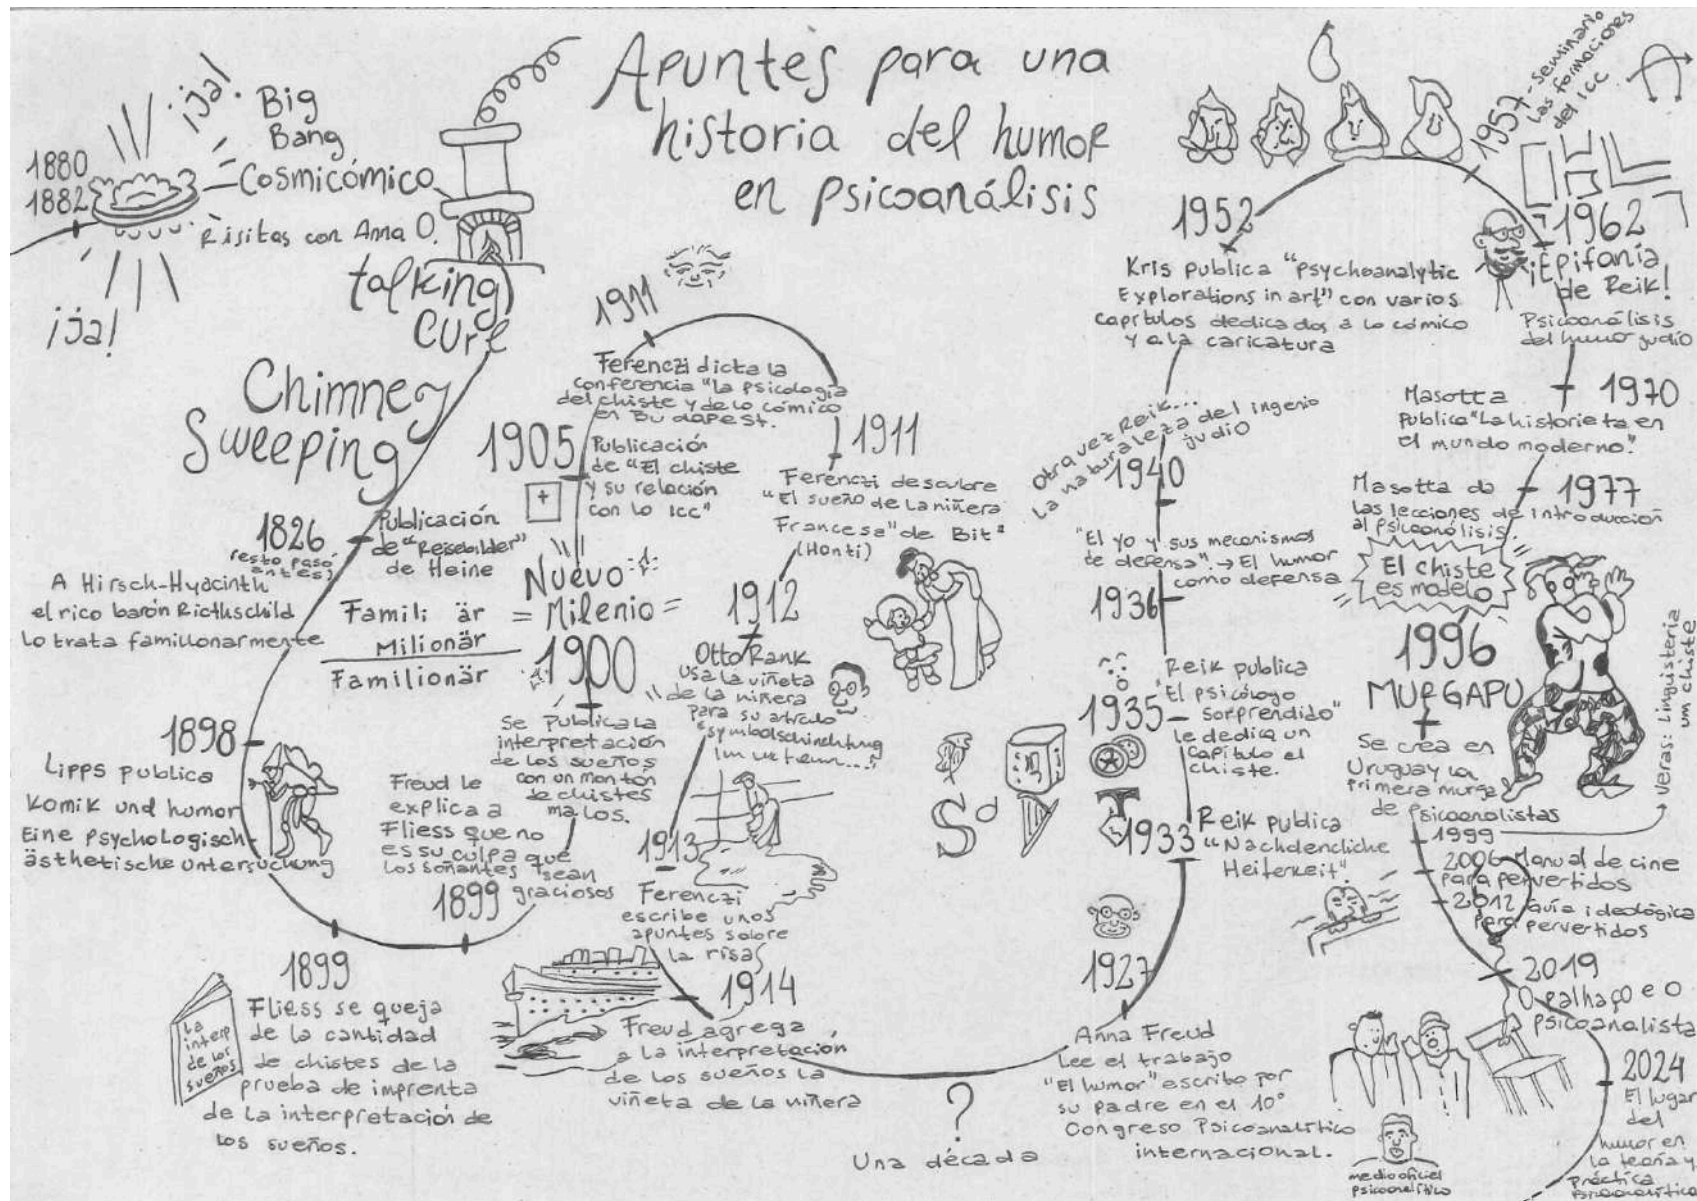 Apuntes para una
historia del humor
en psicoanálisis
1880
1882
¡ja!
Big
Bang
Cosmicómico
Risitas con Anna O.
¡ja!
talking
cure
Chimney
Sweeping
1826
(esto pasó
antes)
Publicación
de "Reisebilder"
de Heine
A Hirsch-Hyacinth
el rico barón Riothschild
lo trata familionarmente
Famili är
Milionär
Familionär
1898
Lipps publica
Komik und humor
Eine psychologisch
ästhetische untersuchung
1899
Fliess se queja
de la cantidad
de chistes de la
prueba de imprenta
de la interpretación de
los sueños.
La
interp
de los
sueños
1899
Freud le
explica a
Fliess que no
es su culpa que
los soñantes sean
graciosos
Nuevo
= Milenio =
1900
Se publica la
interpretación
de los sueños
con un montón
de chistes
malos.
1905
Publicación
de "El chiste
y su relación
con lo icc"
1911
Ferenczi dicta la
conferencia "La psicología
del chiste y de lo cómico
en Budapest.
1911
Ferenczi descubre
"El sueño de la niñera
Francesa" de Bit²
(Honti)
1912
Otto Rank
usa la viñeta
de la niñera
para su artículo
1913
Ferenczi
escribe unos
apuntes sobre
la risa
1914
Freud agrega
a la interpretación
de los sueños la
viñeta de la niñera
?
Una década
1927
Anna Freud
Lee el trabajo
"El humor" escrito por
su padre en el 10°
Congreso Psicoanalítico
internacional.
1933
Reik publica
"Nachdencliche
Heiterkeit".
S d
T
1935
Reik publica
"El psicólogo
sorprendido"
le dedica un
capítulo el
chiste.
1936
"El yo y sus mecanismos
de defensa". → El humor
como defensa
1940
Otra vez Reik...
La naturaleza del ingenio
judío
1952
Kris publica "psychoanalytic
Explorations in art" con varios
capítulos dedicados a lo cómico
y a la caricatura
1957-seminario
las formaciones
del icc
1962
¡Epifanía
de Reik!
Psicoanálisis
del humor judío
1970
Masotta
publica "La historieta en
el mundo moderno."
1977
Masotta da
las lecciones de introducción
al psicoanálisis.
El chiste
es modelo
1996
MURGAPU
Se crea en
Uruguay la
primera murga
de psicoanalistas
1999
Veras: Lingüisteria
um chiste
2006 Manual de cine
para pervertidos
2012 Guía ideológica
para pervertidos
2019
O palhaço e o
psicoanalista
2024
El lugar
del
humor en
la teoría y
práctica
psicoanalítica
medio oficial
psicoanalítico